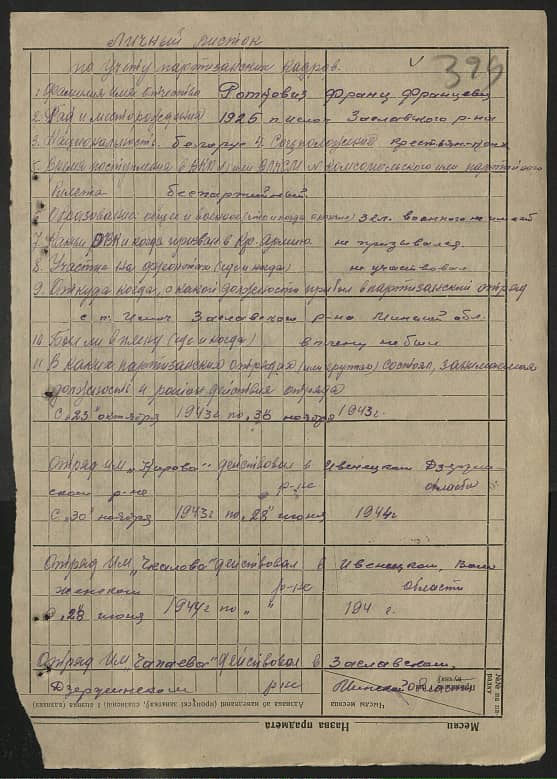 Личный листок
по учету партизанских кадров.
396
1. Фамилия имя отчества Ротгович Франц Францевич
2. Год и место рождения 1925 п. Ислоч Заславского р-на
3. Национальность белорус 4. Соцположение крестьянин
5. Время поступления в ВКП(б) или ВЛКСМ № комсомольского или партийного
билета беспартийный.
6. Образование общее и военное (что и когда окончил) 3 кл. военного не имеет
7. Каким РВК и когда призван в Кр. Армию не призывался.
8. Участие на фронтах (где и когда) не участвовал
9. Откуда когда, с какой должности прибыл в партизанский отряд
с п. Ислоч Заславского р-на Минской обл.
10. Был ли в плену (где и когда) в плену не был
11. В каких партизанских отрядах (или группах) состоял, занимаемая
должность и район действия отряда
С „23" октября 1943г по „30" ноября 1943г.
Отряд им „Кирова" действовал в Ивенецком Дзержин
ском р-не р-не области
С „30" ноября 1943г по „28" июня 1944г
Отряд Им „Чкалова" действовал в Ивенецком, Воло
женском р-не области
С „28" июня 1944г по „ " 194 г.
Отряд Им „Чапаева" действовал в Заславском,
Дзержинском р-не Минской области
Числы месяца
Назва прадмета
Месяц